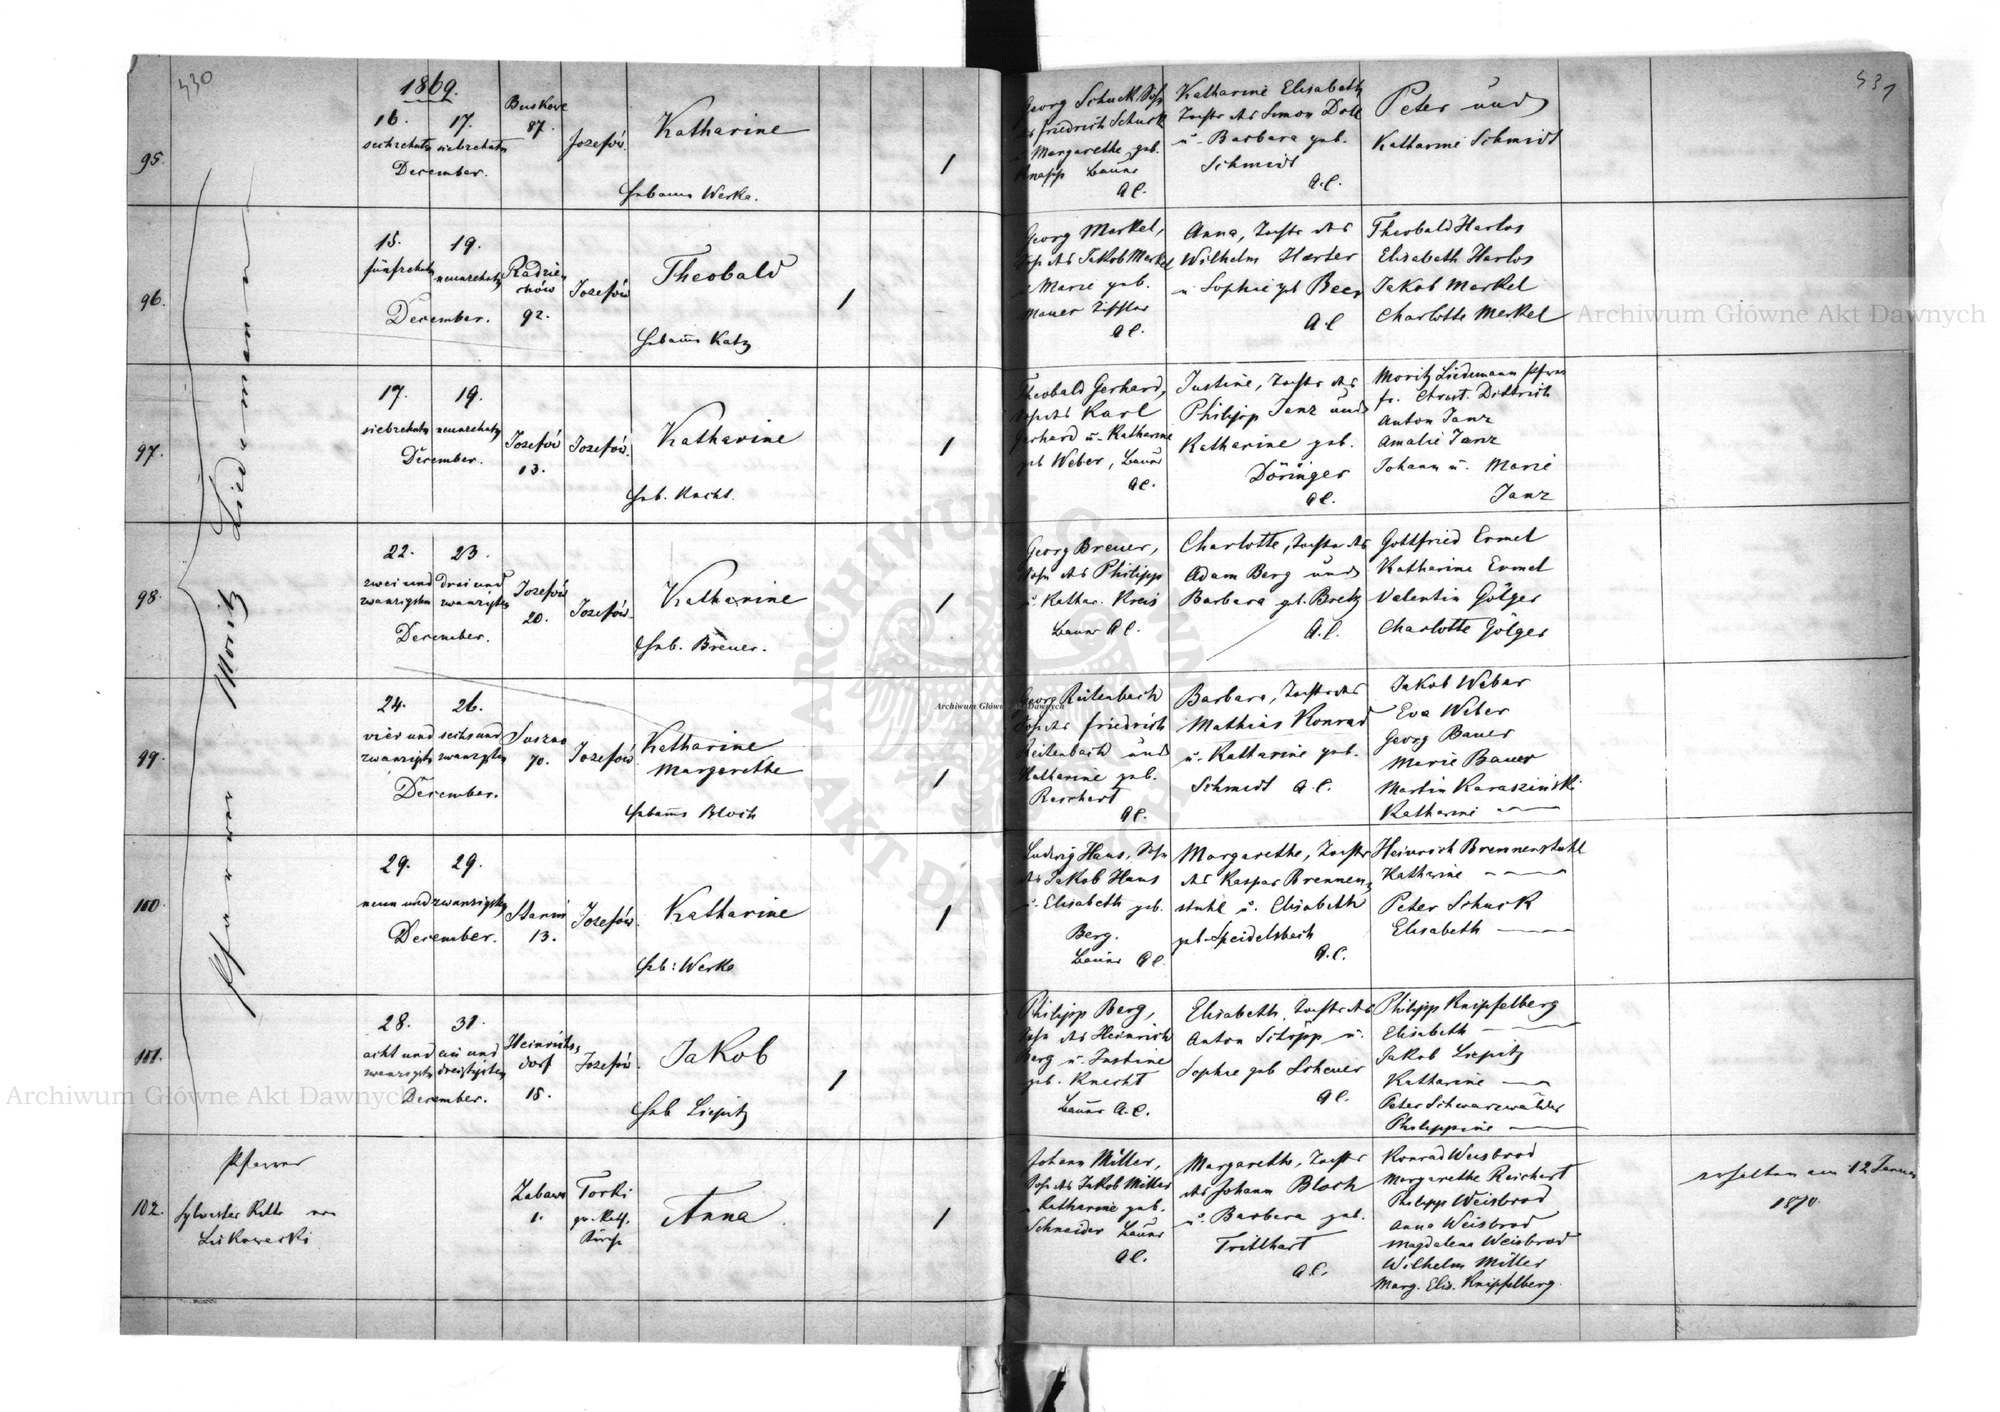 430
1869.
Pfarrer Moritz Liedemann
95.
16. 17.
sechzehnte siebzehnte
December.
Buskove
87.
Josefów.
Katharine
Hebamme Werke.
1
96.
15. 19.
fünfzehnte neunzehnte
December.
Radzie-
chów
92.
Josefów
Theobald
Hebamme Katz
1
97.
17. 19.
siebzehnte neunzehnte
December.
Josefów
13.
Josefów.
Katharine
Heb.
1
98.
22. 23.
zwei und drei und
zwanzigsten zwanzigsten
December.
Josefów
20.
Josefów.
Katharine
Heb. Breuer.
1
99.
24. 26.
vier und sechs und
zwanzigste zwanzigsten
December.
Suszno
70.
Josefów.
Katharine
Margarethe
Hebamme Bloch
1
100.
29. 29.
neun und zwanzigsten
December.
Stanin
13.
Josefów.
Katharine
Heb: Werke
1
101.
28. 31.
acht und ein und
zwanzigste dreissigsten
December.
Heinrichs-
dorf
18.
Josefów.
Jakob
Heb Liepitz
1
102.
Pfarrer
Sylvester von
Zabawa
1.
Torki
gr. Kath.
Kirche
Anna
1
431
Georg Schuck, Sohn
des Friedrich Schuck
u. Margarethe geb.
Knapp Bauer
A.C.
Katharine Elisabeth
Tochter des Simon Doll
u. Barbara geb.
Schmidt
A.C.
Peter und
Katharine Schmidt
Georg Merkel,
Sohn des Jakob Merkel
u Marie geb.
Mauer
A.C.
Anna, Tochter des
Wilhelm Harter
u Sophie geb Beer
A.C
Theobald Harlos
Elisabeth Harlos
Jakob Merkel
Charlotte Merkel
Theobald Gerhard,
Sohn des Karl
Gerhard u. Katharine
geb Weber, Bauer
A.C.
Justine, Tochter des
Philipp Janz und
Katharine geb.
Döringer
A.C.
Moritz Liedemann Pfarrer
Fr. Christ. Dittrich
Anton Janz
Amalie Janz
Johann u. Marie
Janz
Georg Breuer,
Sohn des Philipp
u. Kathar. Kreis
Bauer A.C.
Charlotte, Tochter des
Adam Berg und
Barbara geb. Bretz
A.C.
Gottfried Ermel
Katharine Ermel
Valentin Gölger
Charlotte Gölger
Georg Reitenbach
Sohn des Friedrich
Reitenbach und
Katharine geb.
Reichert
A.C.
Barbara, Tochter des
Mathias Konrad
u. Katharine geb.
Schmidt A.C.
Jakob Weber
Eva Weber
Georg Bauer
Marie Bauer
Martin Karaszinski
Katharine —
Ludwig Haus, Sohn
des Jakob Haus
u. Elisabeth geb.
Berg.
Bauer A.C.
Margarethe, Tochter
des Kaspar Brennen-
stuhl u. Elisabeth
geb. Speidelsbach
A.C.
Heinrich Brennenstuhl
Katharine —
Peter Schuck
Elisabeth —
Philipp Berg,
Sohn des Heinrich
Berg u. Justine
geb. Knecht
Bauer A.C.
Elisabeth, Tochter des
Anton Schöpp u.
Sophie geb Scheuer
A.C.
Philipp Knipfelberg
Elisabeth —
Jakob Liepitz
Katharine —
Peter Schwarzwälder
Philippine —
Johann Müller,
Sohn des Jakob Müller
u Katharine geb.
Schneider Bauer
A.C.
Margarethe, Tochter
des Johann Bloch
u. Barbara geb.
Trillhart
A.C.
Konrad Weisbrod
Margarethe Reichert
Philipp Weisbrod
Anna Weisbrod
Magdalena Weisbrod
Wilhelm Müller
Marg. Elis. Knipfelberg.
erhalten am 12 Januar
1870
Archiwum Główne Akt Dawnych
Archiwum Główne Akt Dawnych
Archiwum Główne Akt Dawnych
ARCHIWUM GŁÓWNE AKT DAWNYCH